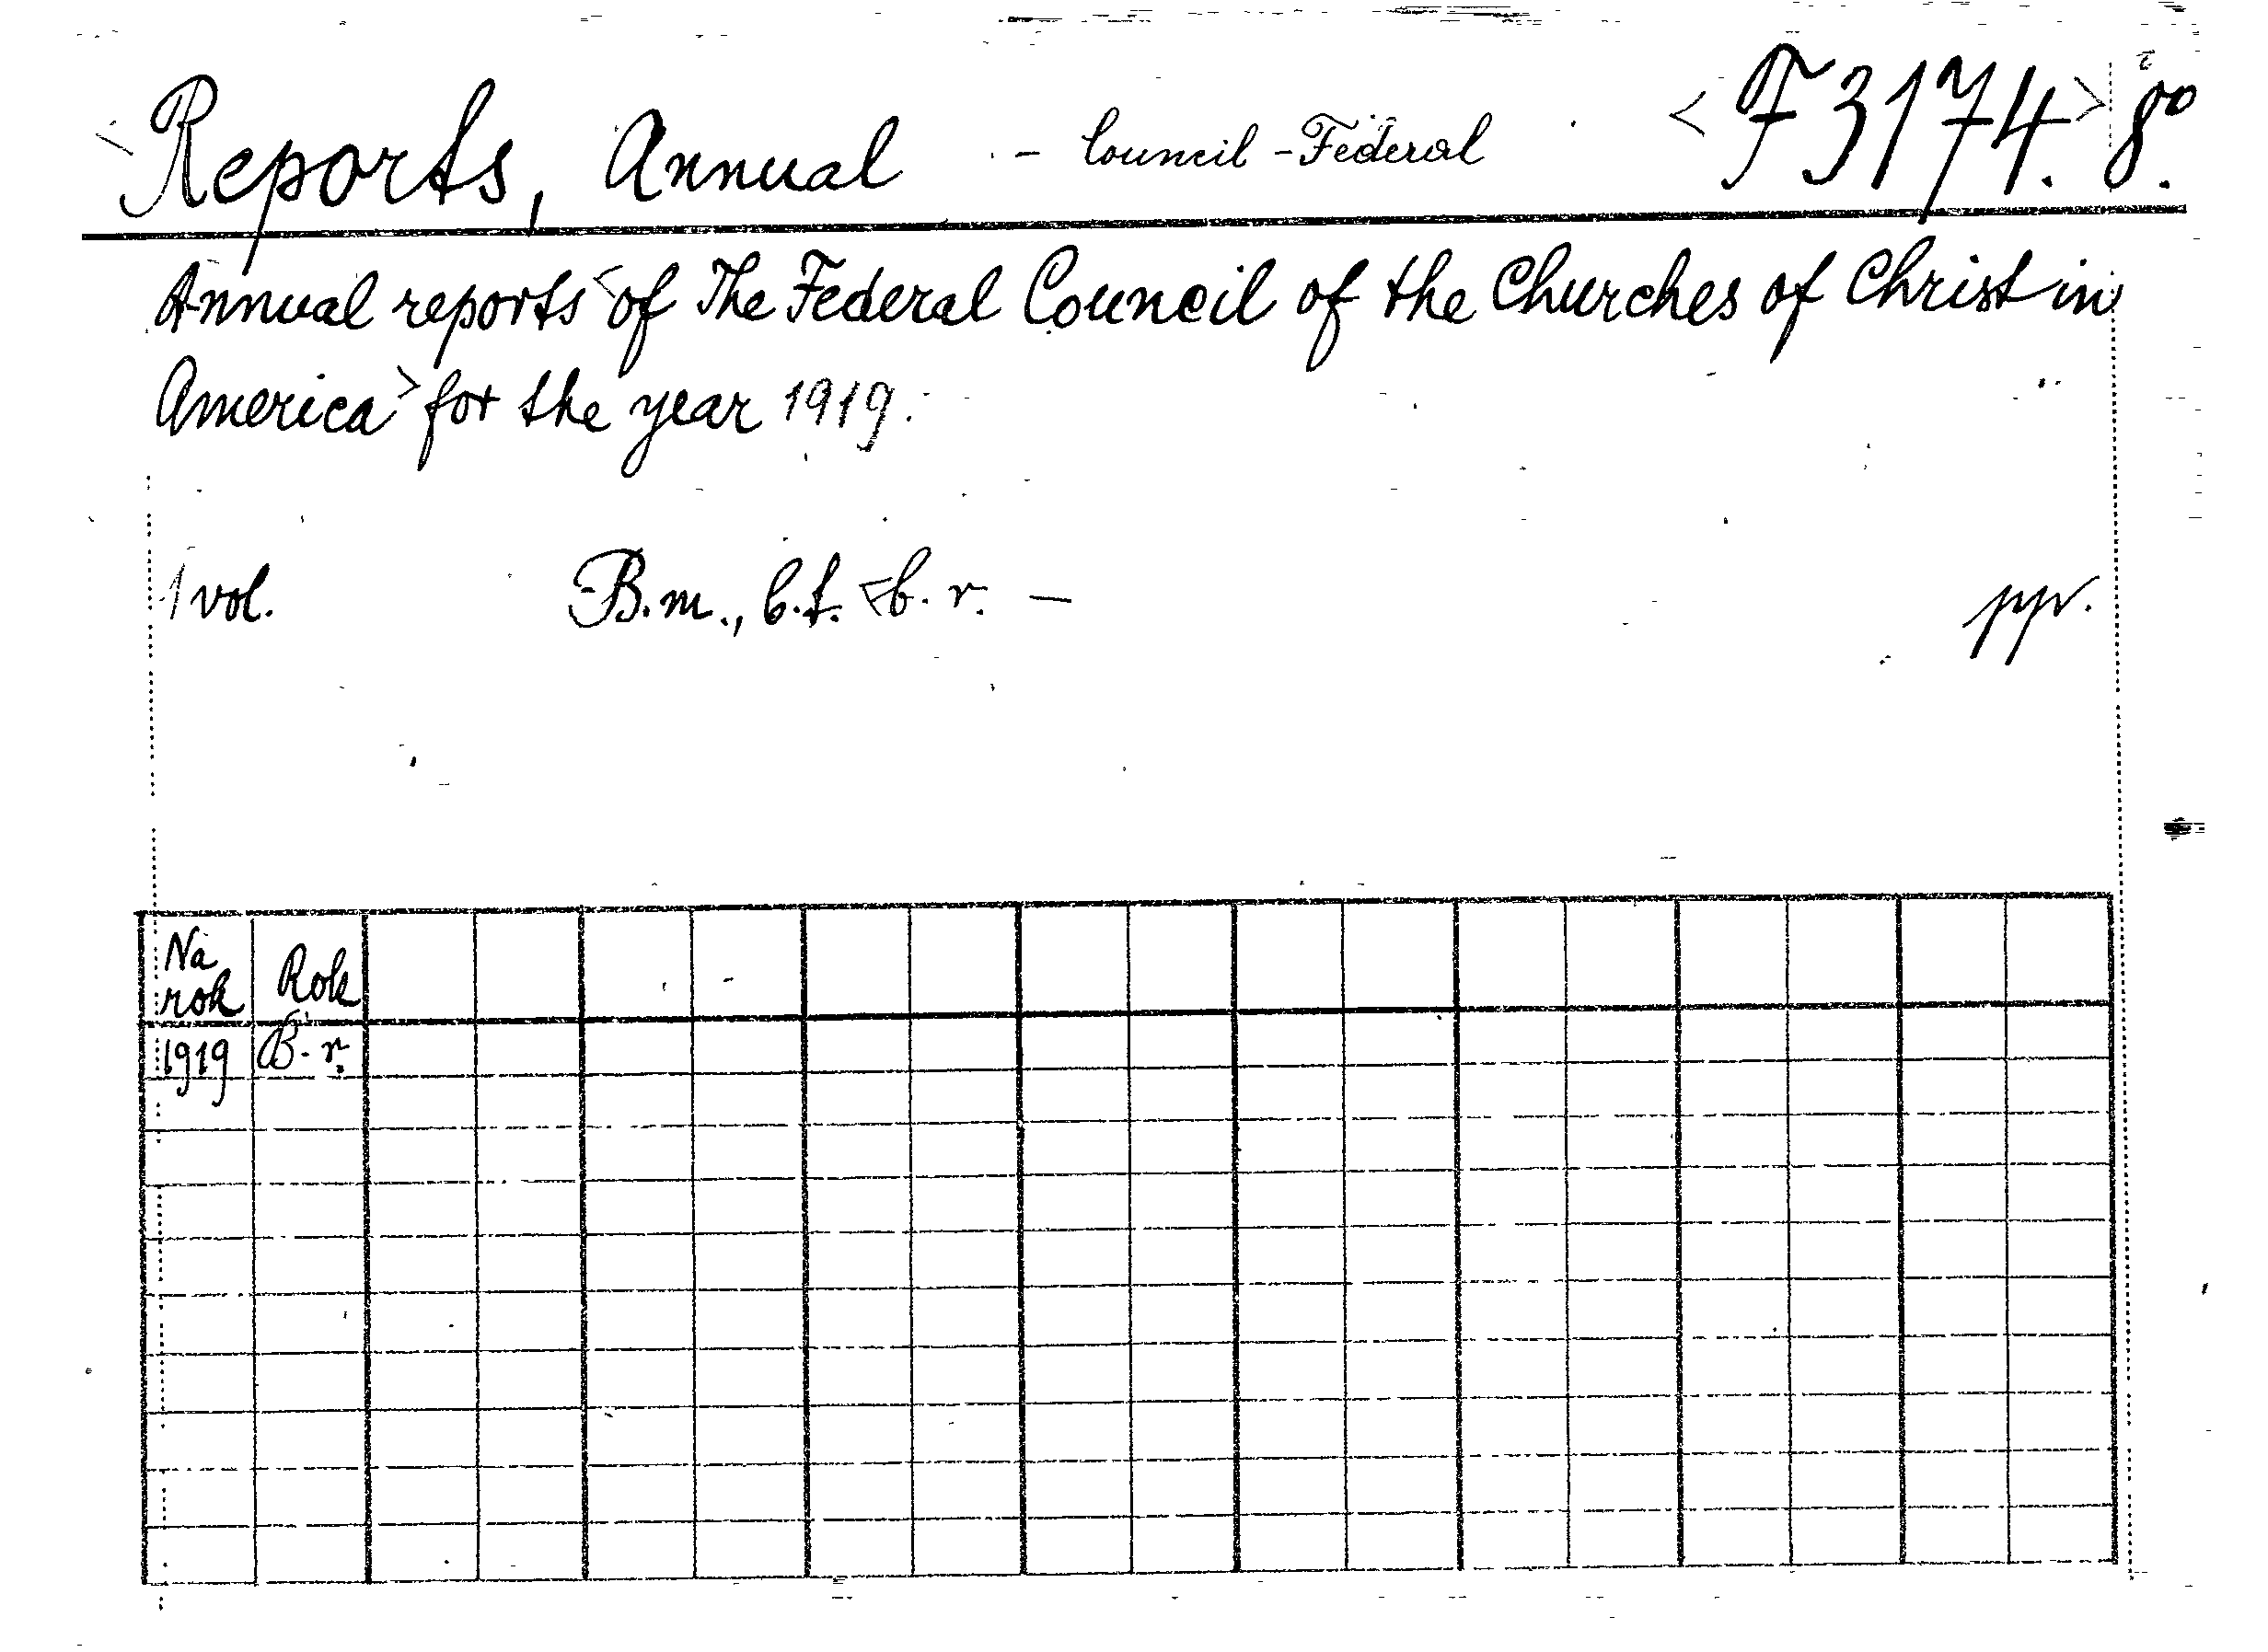 <Reports, Annual - Council - Federal <F 3174.> 8º.
Annual reports <of The Federal Council of the Churches of Christ in
America> for the year 1919.
1 vol. B.m., b.t. <b. r. — ppv.
Na rok Rok
1919 B. r.